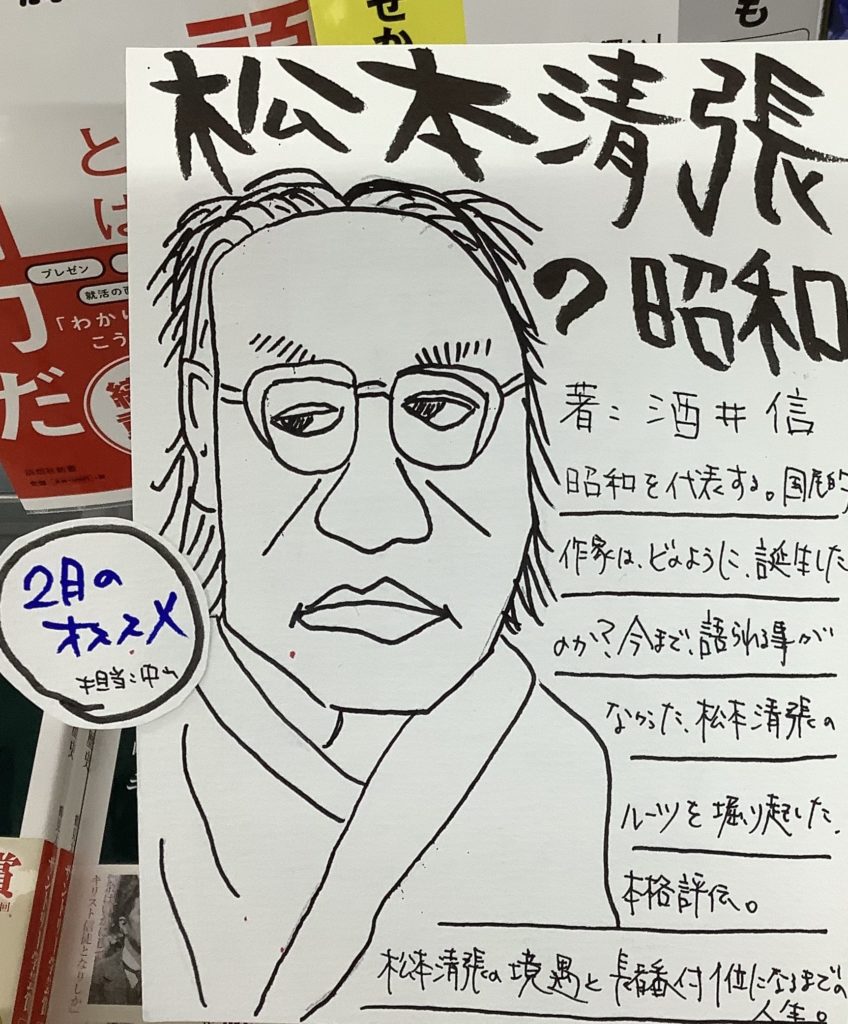 松本清張
の昭和
著：酒井信
昭和を代表する。国民的
作家は、どのように、誕生した
のか？今まで、語られる事が
なかった、松本清張の
ルーツを掘り起した、
本格評伝。
松本清張の境遇と長者番付1位になるまでの
人生。
2月の
オススメ
担当：中山
せか
も
とは
プレゼン
就活の
「わかり
こう
だ
キリスト信徒となりしか」
賞